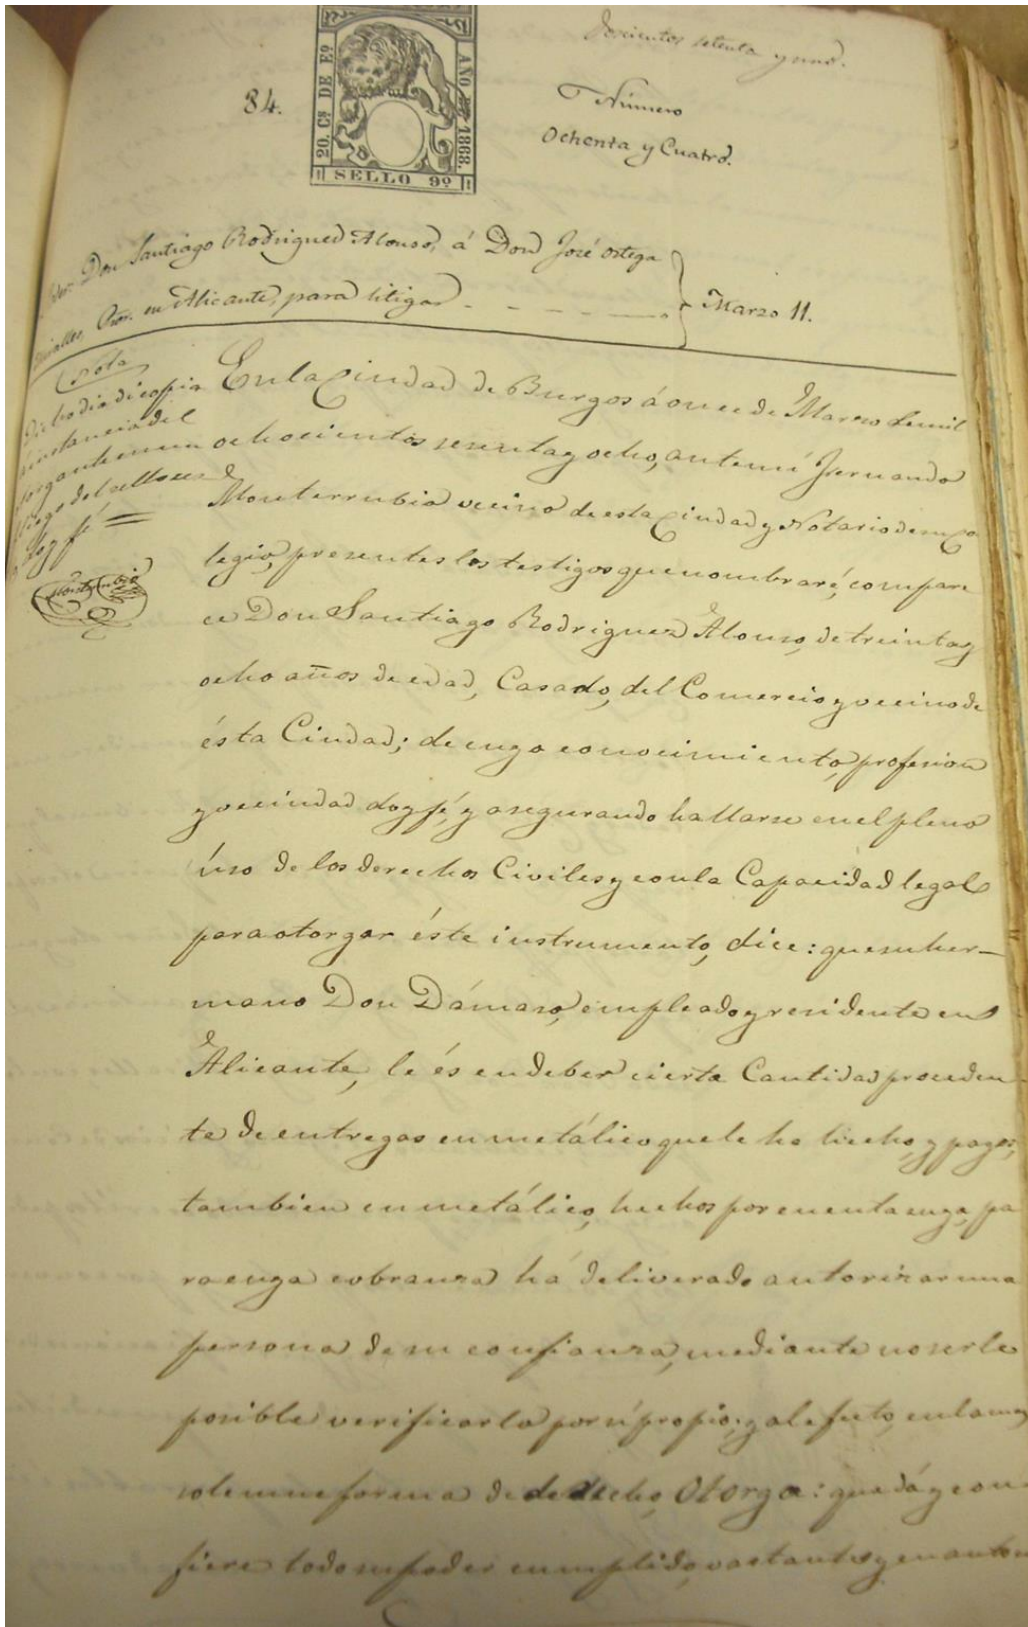 Doscientos setenta y uno.
84.
20. Cs DE Eo
AÑO DE 1868.
SELLO 9º
Número
Ochenta y Cuatro.
Poder: Don Santiago Rodriguez Alonso, á Don José Ortega
Miralles Pror. en Alicante, para litigar
Marzo 11.
Nota
Dicho dia di copia
á instancia del
otorgante en un
pliego del sello
doy fé
Monterrubio
En la Ciudad de Burgos á once de Marzo de mil
ochocientos sesenta y ocho, ante mí Fernando
Monterrubio vecino de esta Ciudad y Notario de su Co
legio, presentes los testigos que nombraré, compare
ce Don Santiago Rodriguez Alonso, de treinta y
ocho años de edad, Casado, del Comercio y vecino de
ésta Ciudad; de cuyo conocimiento, profesion
y vecindad doy fé, y asegurando hallarse en el pleno
úso de los derechos Civiles y con la Capacidad legal
para otorgar éste instrumento, dice: que su her-
mano Don Dámaso, empleado y residente en
Alicante, le és en deber cierta Cantidad proceden-
te de entregas en metálico que le ha hecho, y pagos,
tambien en metálico, hechos por cuenta suya, pa
ra cuya cobranza há deliverado autorizar una
persona de su confianza, mediante no serle
posible verificarlo por sí propio; y al efecto, en la mas
solemne forma de derecho, Otorga: que dá y con
fiere todo su poder cumplido, vastante y en cuanto